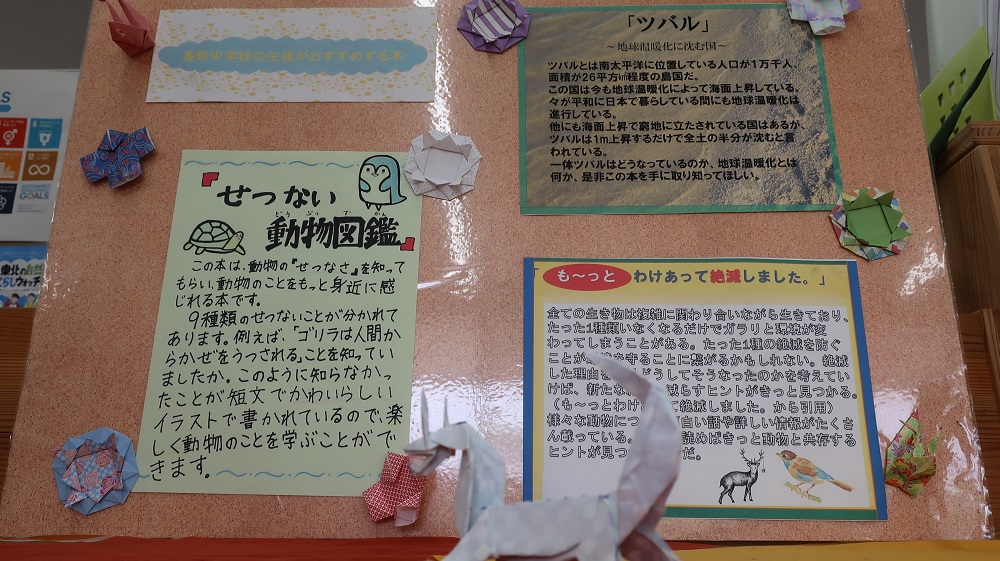 長町中学校の生徒がおすすめする本
「ツバル」
~地球温暖化に沈む国~
ツバルとは南太平洋に位置している人口が1万千人、
面積が26平方㎞程度の島国だ。
この国は今も地球温暖化によって海面上昇している。
々が平和に日本で暮らしている間にも地球温暖化は
進行している。
他にも海面上昇で窮地に立たされている国はあるが、
ツバルは1m上昇するだけで全土の半分が沈むと言
われている。
一体ツバルはどうなっているのか、地球温暖化とは
何か、是非この本を手に取り知ってほしい。
『せつない
どうぶつずかん
動物図鑑』
この本は、動物の『せつなさ』を知って
もらい、動物のことをもっと身近に感
じれる本です。
9種類のせつないことが分かれて
あります。例えば、「ゴリラは人間か
らかぜをうつされる」ことを知ってい
ましたか。このように知らなかっ
たことが短文でかわいらしい
イラストで書かれているので、楽
しく動物のことを学ぶことがで
きます。
「も~っとわけあって絶滅しました。」
全ての生き物は複雑に関わり合いながら生きており、
たった1種類いなくなるだけでガラリと環境が変
わってしまうことがある。たった1種の絶滅を防ぐ
ことが を守ることに繋がるかもしれない。絶滅
した理由を どうしてそうなったのかを考えてい
けば、新たな 減らすヒントがきっと見つかる。
(も~っとわけ て絶滅しました。から引用)
様々な動物につ 白い話や詳しい情報がたくさ
ん載っている。 読めばきっと動物と共存する
ヒントが見つ だ。
GOALS
東北の自然